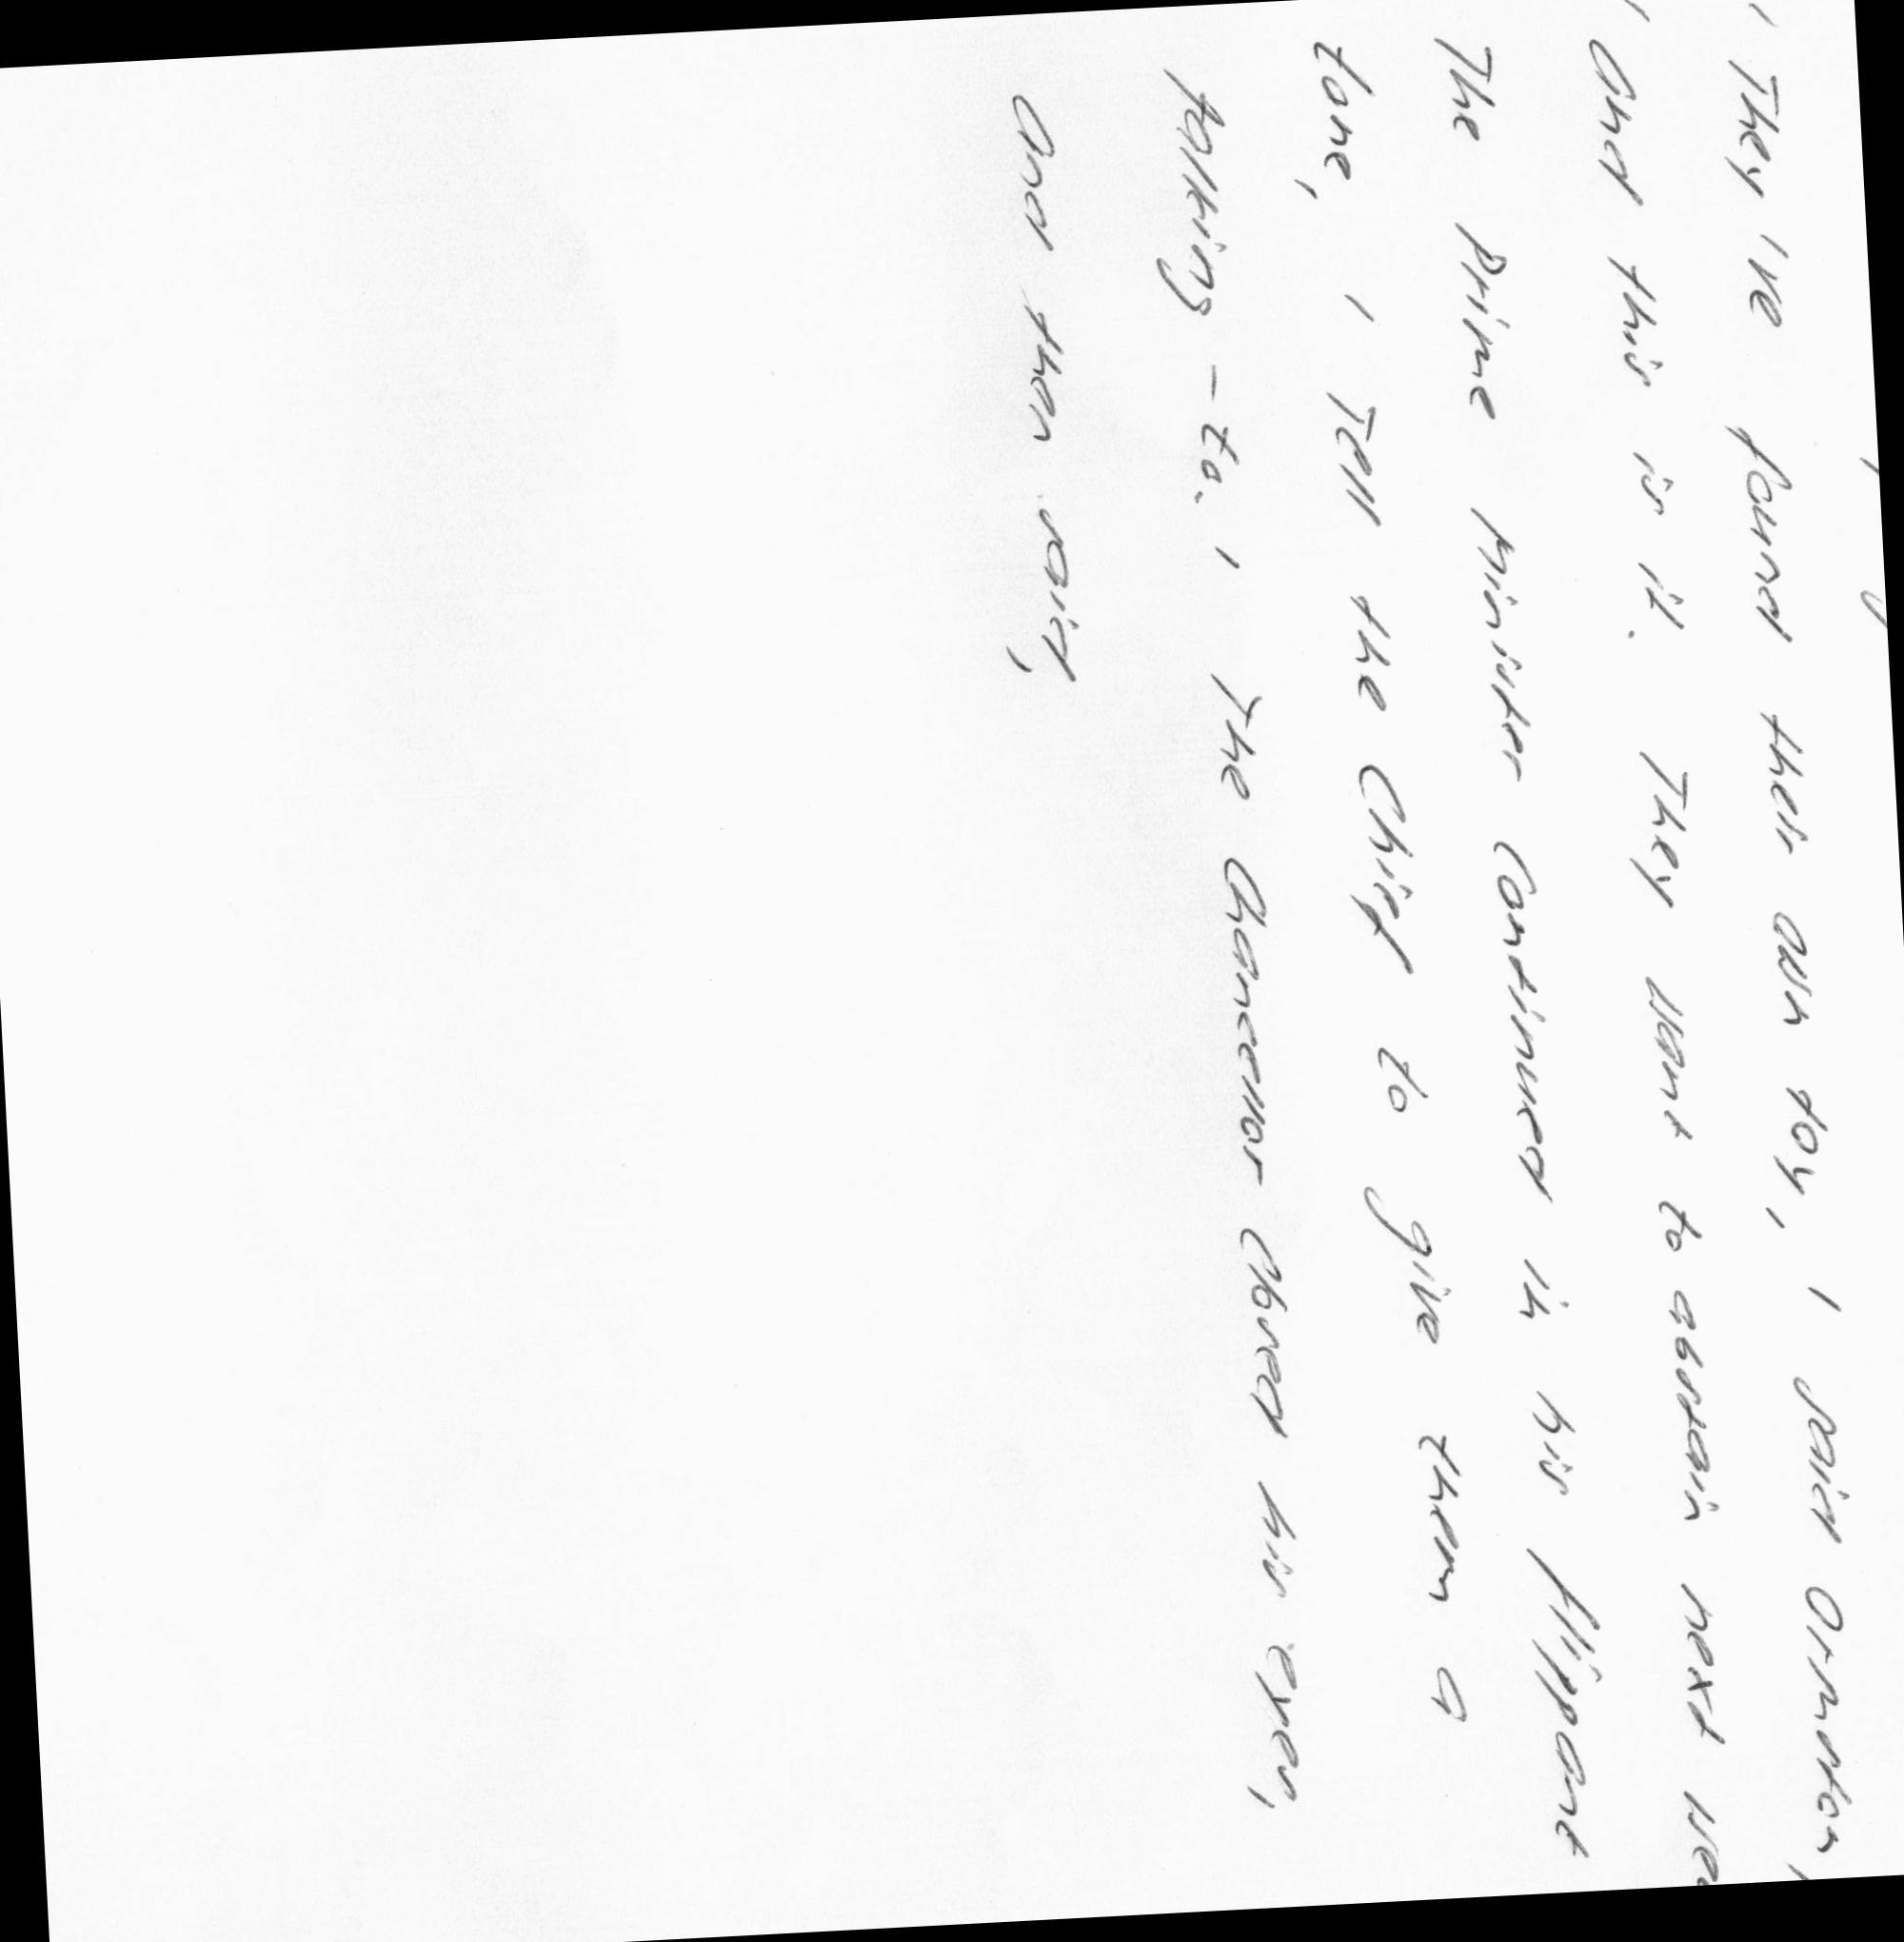 ' They 've found their own toy, ' said Ormston,
' And this is it. They want to abstain next we
The Prime Minister continued in his flippant
tone, ' Tell the Chief to give them a
talking - to. ' The Chancellor closed his eyes,
and then said,